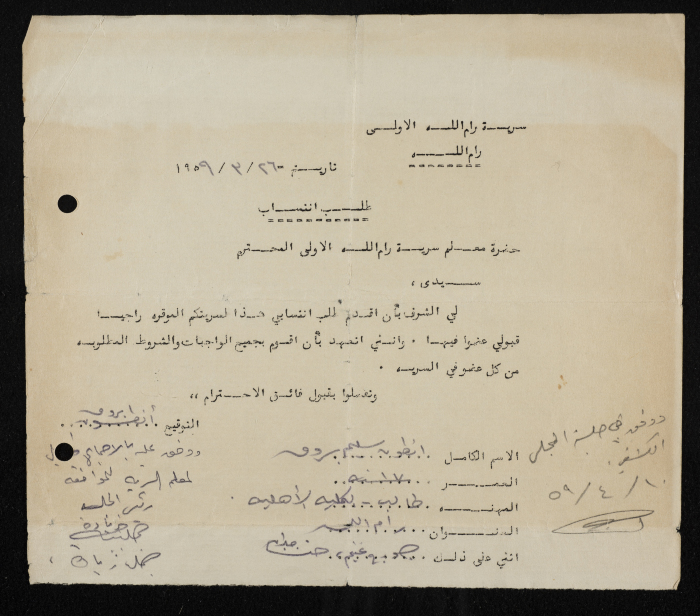 سرية رام الله الاولى
رام الله
تاريخ ٢٦/٣/١٩٥٩
طلب انتساب
حضرة معلم سرية رام الله الاولى المحترم
سيدى ،
لي الشرف بأن اقدم طلب انتسابي هذا لسريتكم الموقره راجيا
قبولي عضوا فيها . وانني اتعهد بأن اقوم بجميع الواجبات والشروط المطلوبه
من كل عضو في السريه .
وتفضلوا بقبول فائق الاحترام ،،
التوقيع
الاسم الكامل انطون سليم
العمر ١٧ سنه
المهنه طالب - بكلية الاهليه
العنوان رام الله
اثنى على ذلك
ووفق عليه بالاجماع
لمعلم السرية للموافقة
رئيس الجلسه
ووفق في جلسة المجلس
الكشفي
١٠/٤/٥٩